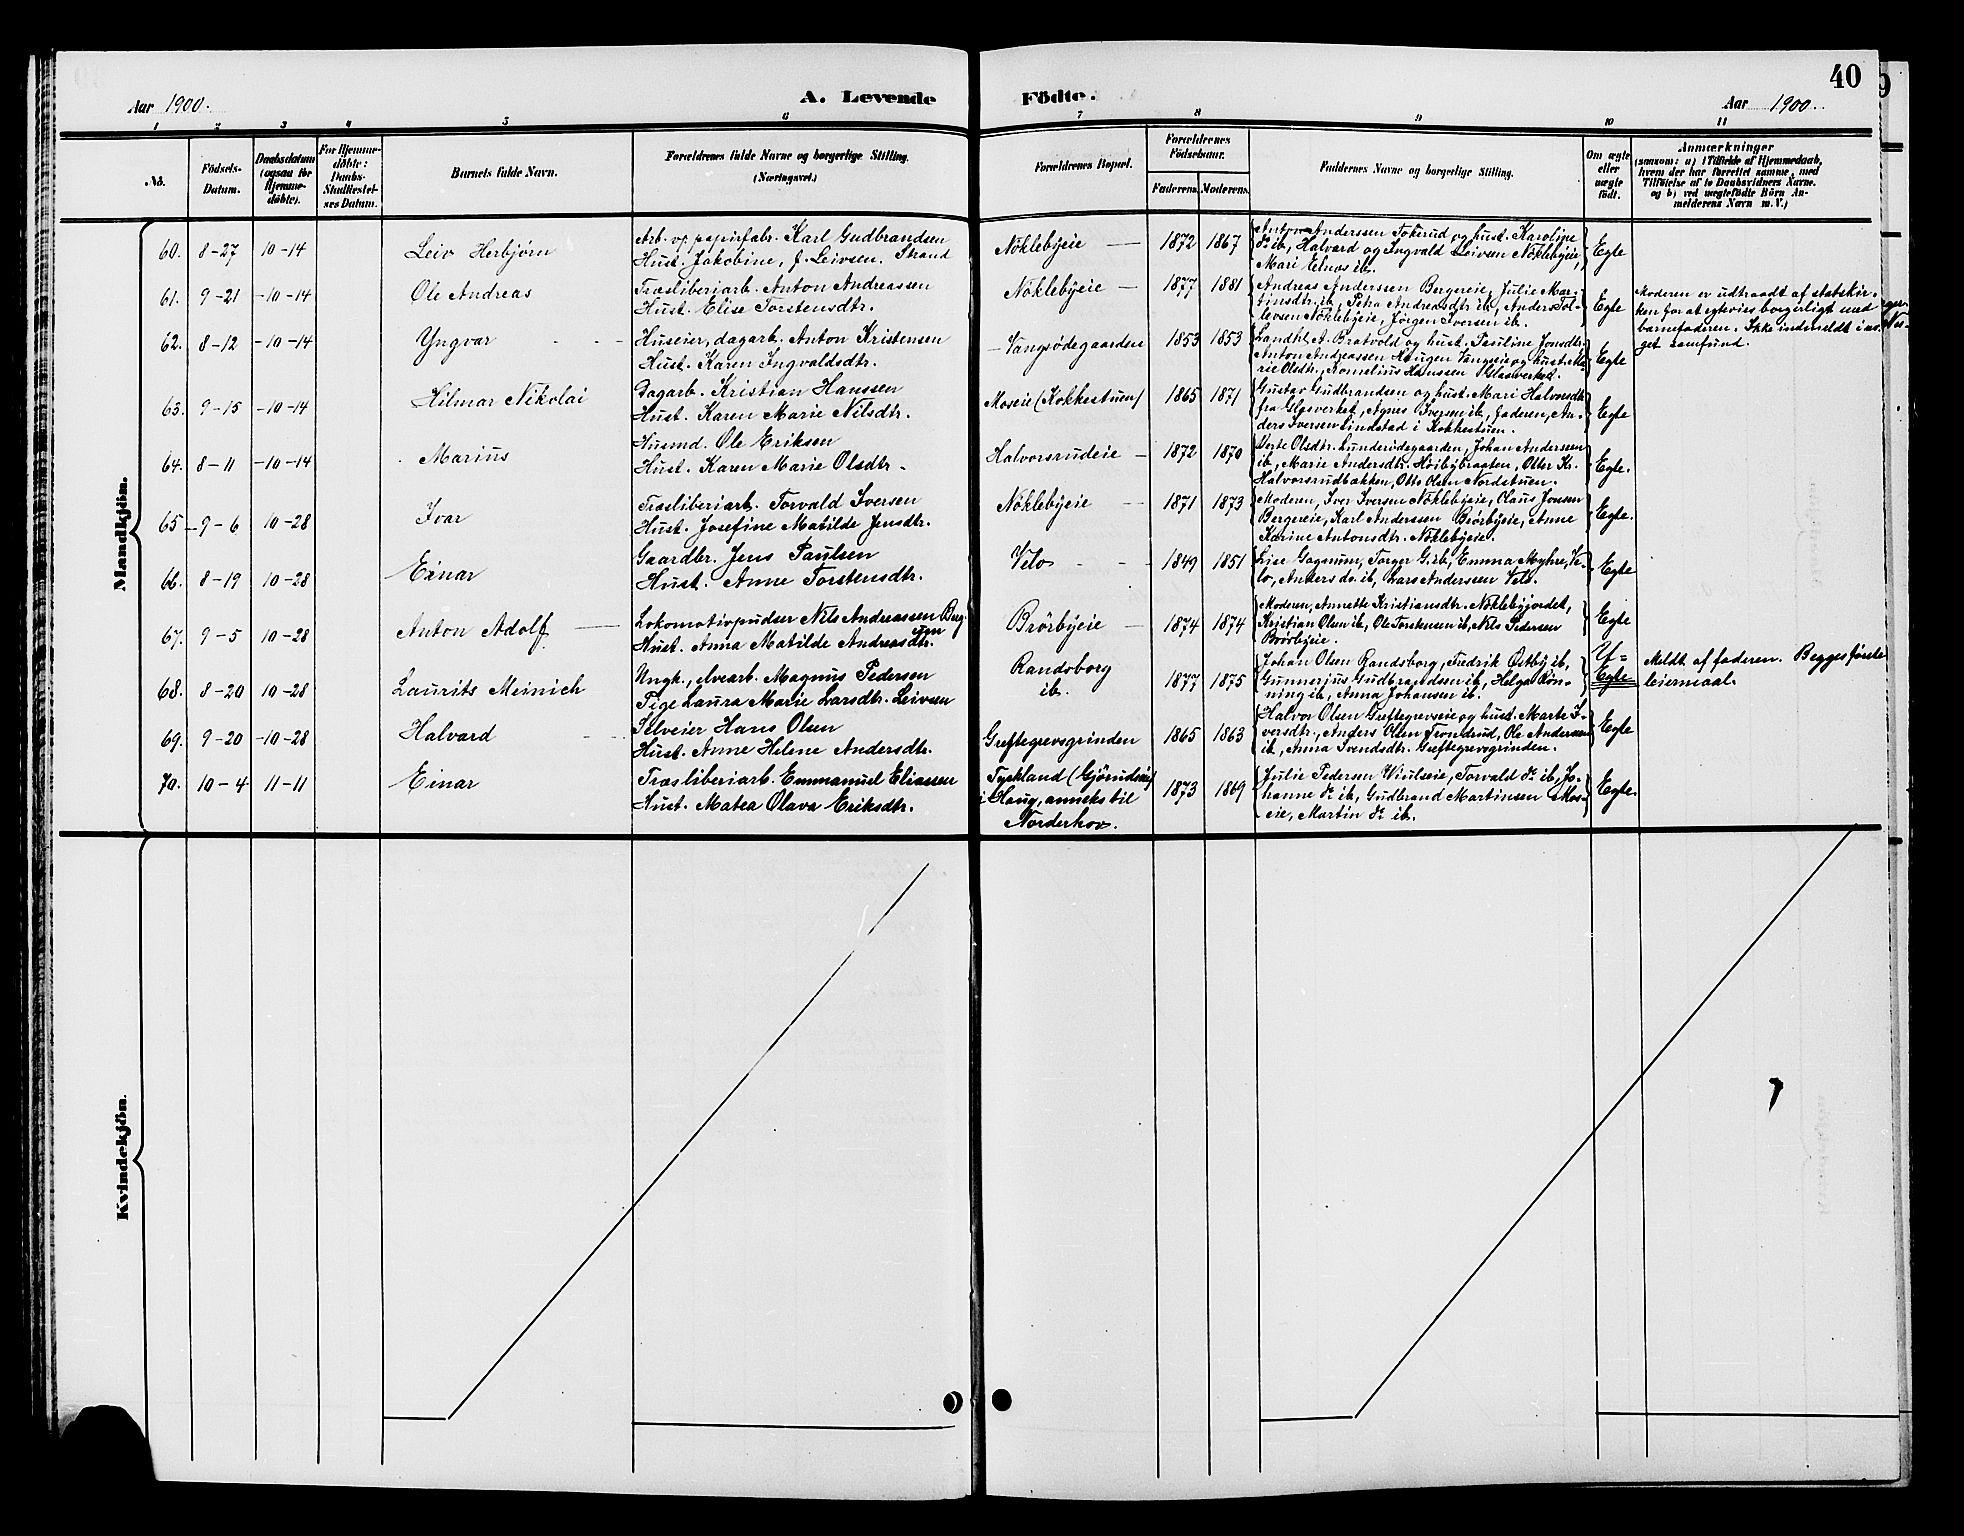 40
Aar 1900.
A. Levende Födte.
Aar 1900.
1 2 3 4 5 6 7 8 9 10 11
No.
Födsels-Datum.
Daabsdatum (ogsaa for Hjemmedöbte).
For Hjemmedöbte: Daabs-Stadfæstelses Datum.
Barnets fulde Navn.
Forældrenes fulde Navne og borgerlige Stilling. (Næringsvei.)
Forældrenes Bopæl.
Forældrenes Födselsaar.
Faderens. Moderens.
Faddernes Navne og borgerlige Stilling.
Om ægte eller uægte födt.
Anmærkninger
(saasom: a) i Tilfælde af Hjemmedaab, hvem der har forrettet samme, med Tilföielse af to Daabsvidners Navne, og b) ved uægtefödte Börn Anmelderens Navn m. V.)
Mandkjön.
60. 8-27 10-14 Leiv Herbjørn
Arb. ved papirfabr. Karl Gudbrandsen
Hust. Jakobine, f. Leivsen. Strand
Nöklebyeie — 1872 1867
Anton Anderssen Tokerud og hust. Karoline
do ib, Halvard og Ingvald Leivsen Nöklebyeie,
Mari Elnes ib.
Egte
61. 9-21 -10-14 Ole Andreas
Træsliberiarb. Anton Andreassen
Hust. Elise Torstensdtr.
Nöklebyeie — 1877 1881
Andreas Anderssen Bergereie, Julie Mar-
tinsdtr. ib, Petra Andreasdtr ib, Anders Tol-
levsen Nöklebyeie, Jörgen Iversen ib.
Egte
Moderen er udtraadt af statskir-
ken for at egtevies borgerligt med
barnefaderen. Ikke indmeldt i no-
get samfund.
62. 8-12 -10-14 Yngvar
Huseier, dagarb. Anton Kristensen
Hust. Karen Ingvaldsdtr.
Vangsödegaarden 1853 1853
Landh. A. Bratvold og hust. Pauline Jonsdtr.
Anton Andreassen Haugen Vangseie og hust. Ma-
rie Olsdtr., Kornelius Hanssen Glasverket.
Egte
63. 9-15 -10-14 Hilmar Nikolai
Dagarb. Kristian Hanssen
Hust. Karen Marie Nilsdtr.
Moseie (Kokkestuen) 1865 1871
Gustav Gudbrandsen og hust. Mari Halvorsdtr
fra Glasverket, Agnes Iversen ib, faderen, An-
ders Iversen Lindstad i Kokkestuen.
Egte
64. 8-11 -10-14 Marius
Husmd. Ole Eriksen
Hust. Karen Marie Olsdtr.
Halvorsrudeie — 1872 1870
Berte Olsdtr. Lunderødegaarden, Johan Anderssen
ib, Marie Andersdtr. Höibybraaten, Otter Kr.
Halvorsrudbakken, Otto Olsen Nordstuen.
Egte.
65 9-6 10-28 Ivar
Træsliberiarb. Torvald Iversen
Hust. Josefine Matilde Jensdtr.
Nöklebyeie — 1871 1873
Moderen, Iver Iversen Nöklebyeie, Olaus Jensen
Bergereie, Karl Anderssen Brörbyeie, Anne
Karine Antonsdtr. Nöklebyeie.
Egte.
66. 8-19 10-28 Einar
Gaardbr. Jens Paulsen
Hust. Anne Torstensdtr.
Velo 1849 1851
Lise Gagnum, Torger G. ib, Emma Myhre, Ve-
lo, Anders do. ib, Lars Anderssen Velo.
Egte
67. 9-5 10-28 Anton Adolf
Lokomotivpudser Nils Andreassen Berg.
Hust. Anna Matilde Andreasdtr.
Brörbyeie — 1874 1874
Moderen, Annette Kristiansdtr. Nöklebyjordet,
Kristian Olsen ib, Ole Torstensen ib, Nils Pedersen
Brörbyeie.
Egte
68. 8-20 10-28 Laurits Meinich
Ungk., elvearb. Magnus Pedersen
Pige Laura Marie Larsdtr. Leivsen
Randsborg
ib. 1877 1875
Johan Olsen Randsborg, Fredrik Østby ib,
Gunnerius Gudbrandsen ib, Helga Røn-
ning ib, Anna Johansen ib.
U=
Egte
Meldt af faderen. Begges förste
leiermaal.
69. 9-20 -10-28 Halvard
Selveier Hans Olsen
Hust. Anne Helene Andersdtr.
Greftegrevsgrinden 1865 1863
Halvor Olsen Greftegrevseie og hust. Marte I-
versdtr., Anders Olsen Trondrud, Ole Anderssen
ib, Anna Svendsdtr. Greftegrevsgrinden.
Egte
70. 10-4 11-11 Einar
Træsliberiarb. Emmanuel Eliassen
Hust. Matea Olava Eriksdtr.
Tyskland (Gjörudseie)
i Haug, anneks til
Norderhov. 1873 1869
Julie Pedersen Viulseie, Torvald do ib, Jo-
hanne do ib, Gudbrand Martinsen Mos-
eie, Martin do ib.
Egte.
Kvindekjön.